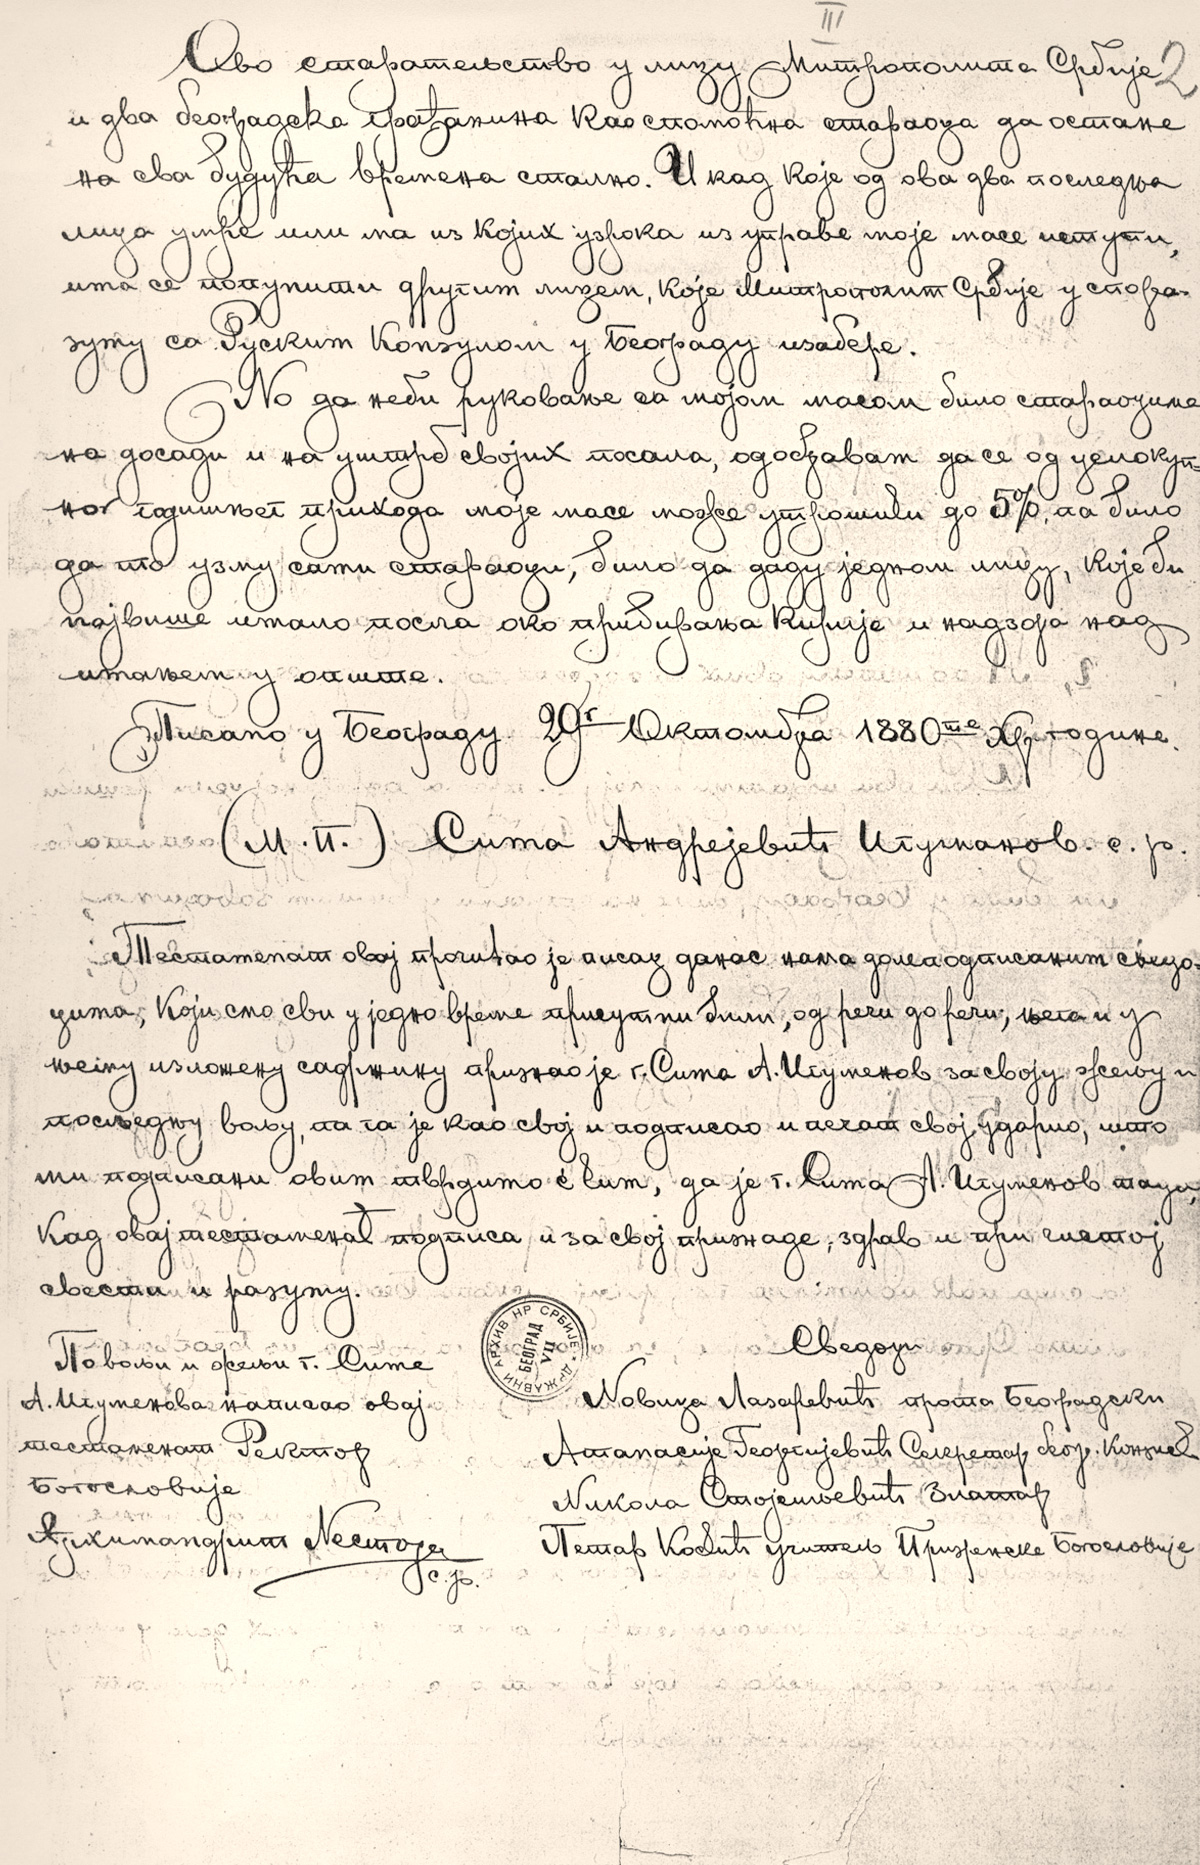 III
2
Ово старатељство у лицу Митрополита Србије
и два београдска грађанина као спомоћна стараоца да остане
на сва будућа времена стално. И кад које од ова два последња
лица умре или ма из којих узрока из управе моје масе иступи,
има се попунити другим лицем, које Митрополит Србије у спора-
зуму са Руским Конзулом у Београду изабере.
Но да неби руковање са мојом масом било стараоцима
на досади и на уштрб својих посала, одобравам да се од целокуп-
ног годишњег прихода моје масе може утрошити до 5%, па било
да то узму сами стараоци, било да даду једном лицу, које би
највише имало посла око прибирања кирије и надзора над
имањем у опште.
Писано у Београду 29г Октомбра 1880те Хр. године.
(М.П.) Сима Андрејевић Игуманов с. р.
Тестаменат овај прочитао је писац данас нама долеподписаним свједо-
цима, који смо сви у једно време присутни били, од речи до речи, њега и у
њему изложену садржину признао је г. Сима А. Игуменов за своју жељу и
посљедњу вољу, па га је као свој и подписао и печат свој ударио, што
ми подписани овим тврдимо с тим, да је г. Сима А. Игуменов тада,
кад овај тестаменат подписа и за свој признаде, здрав и при чистој
свести и разуму.
По вољи и жељи г. Симе
А. Игуменова написао овај
тестаменат Ректор
Богословије
Архимандрит Нестор
с. р.
ДРЖАВНИ АРХИВ НР СРБИЈЕ
БЕОГРАД
VII
Сведоци
Новица Лазаревић прота Београдски
Атанасије Георгијевић Секретар беог. Конзис
Никола Стојиљевић Златар
Петар Костић учитељ Призренске Богословије